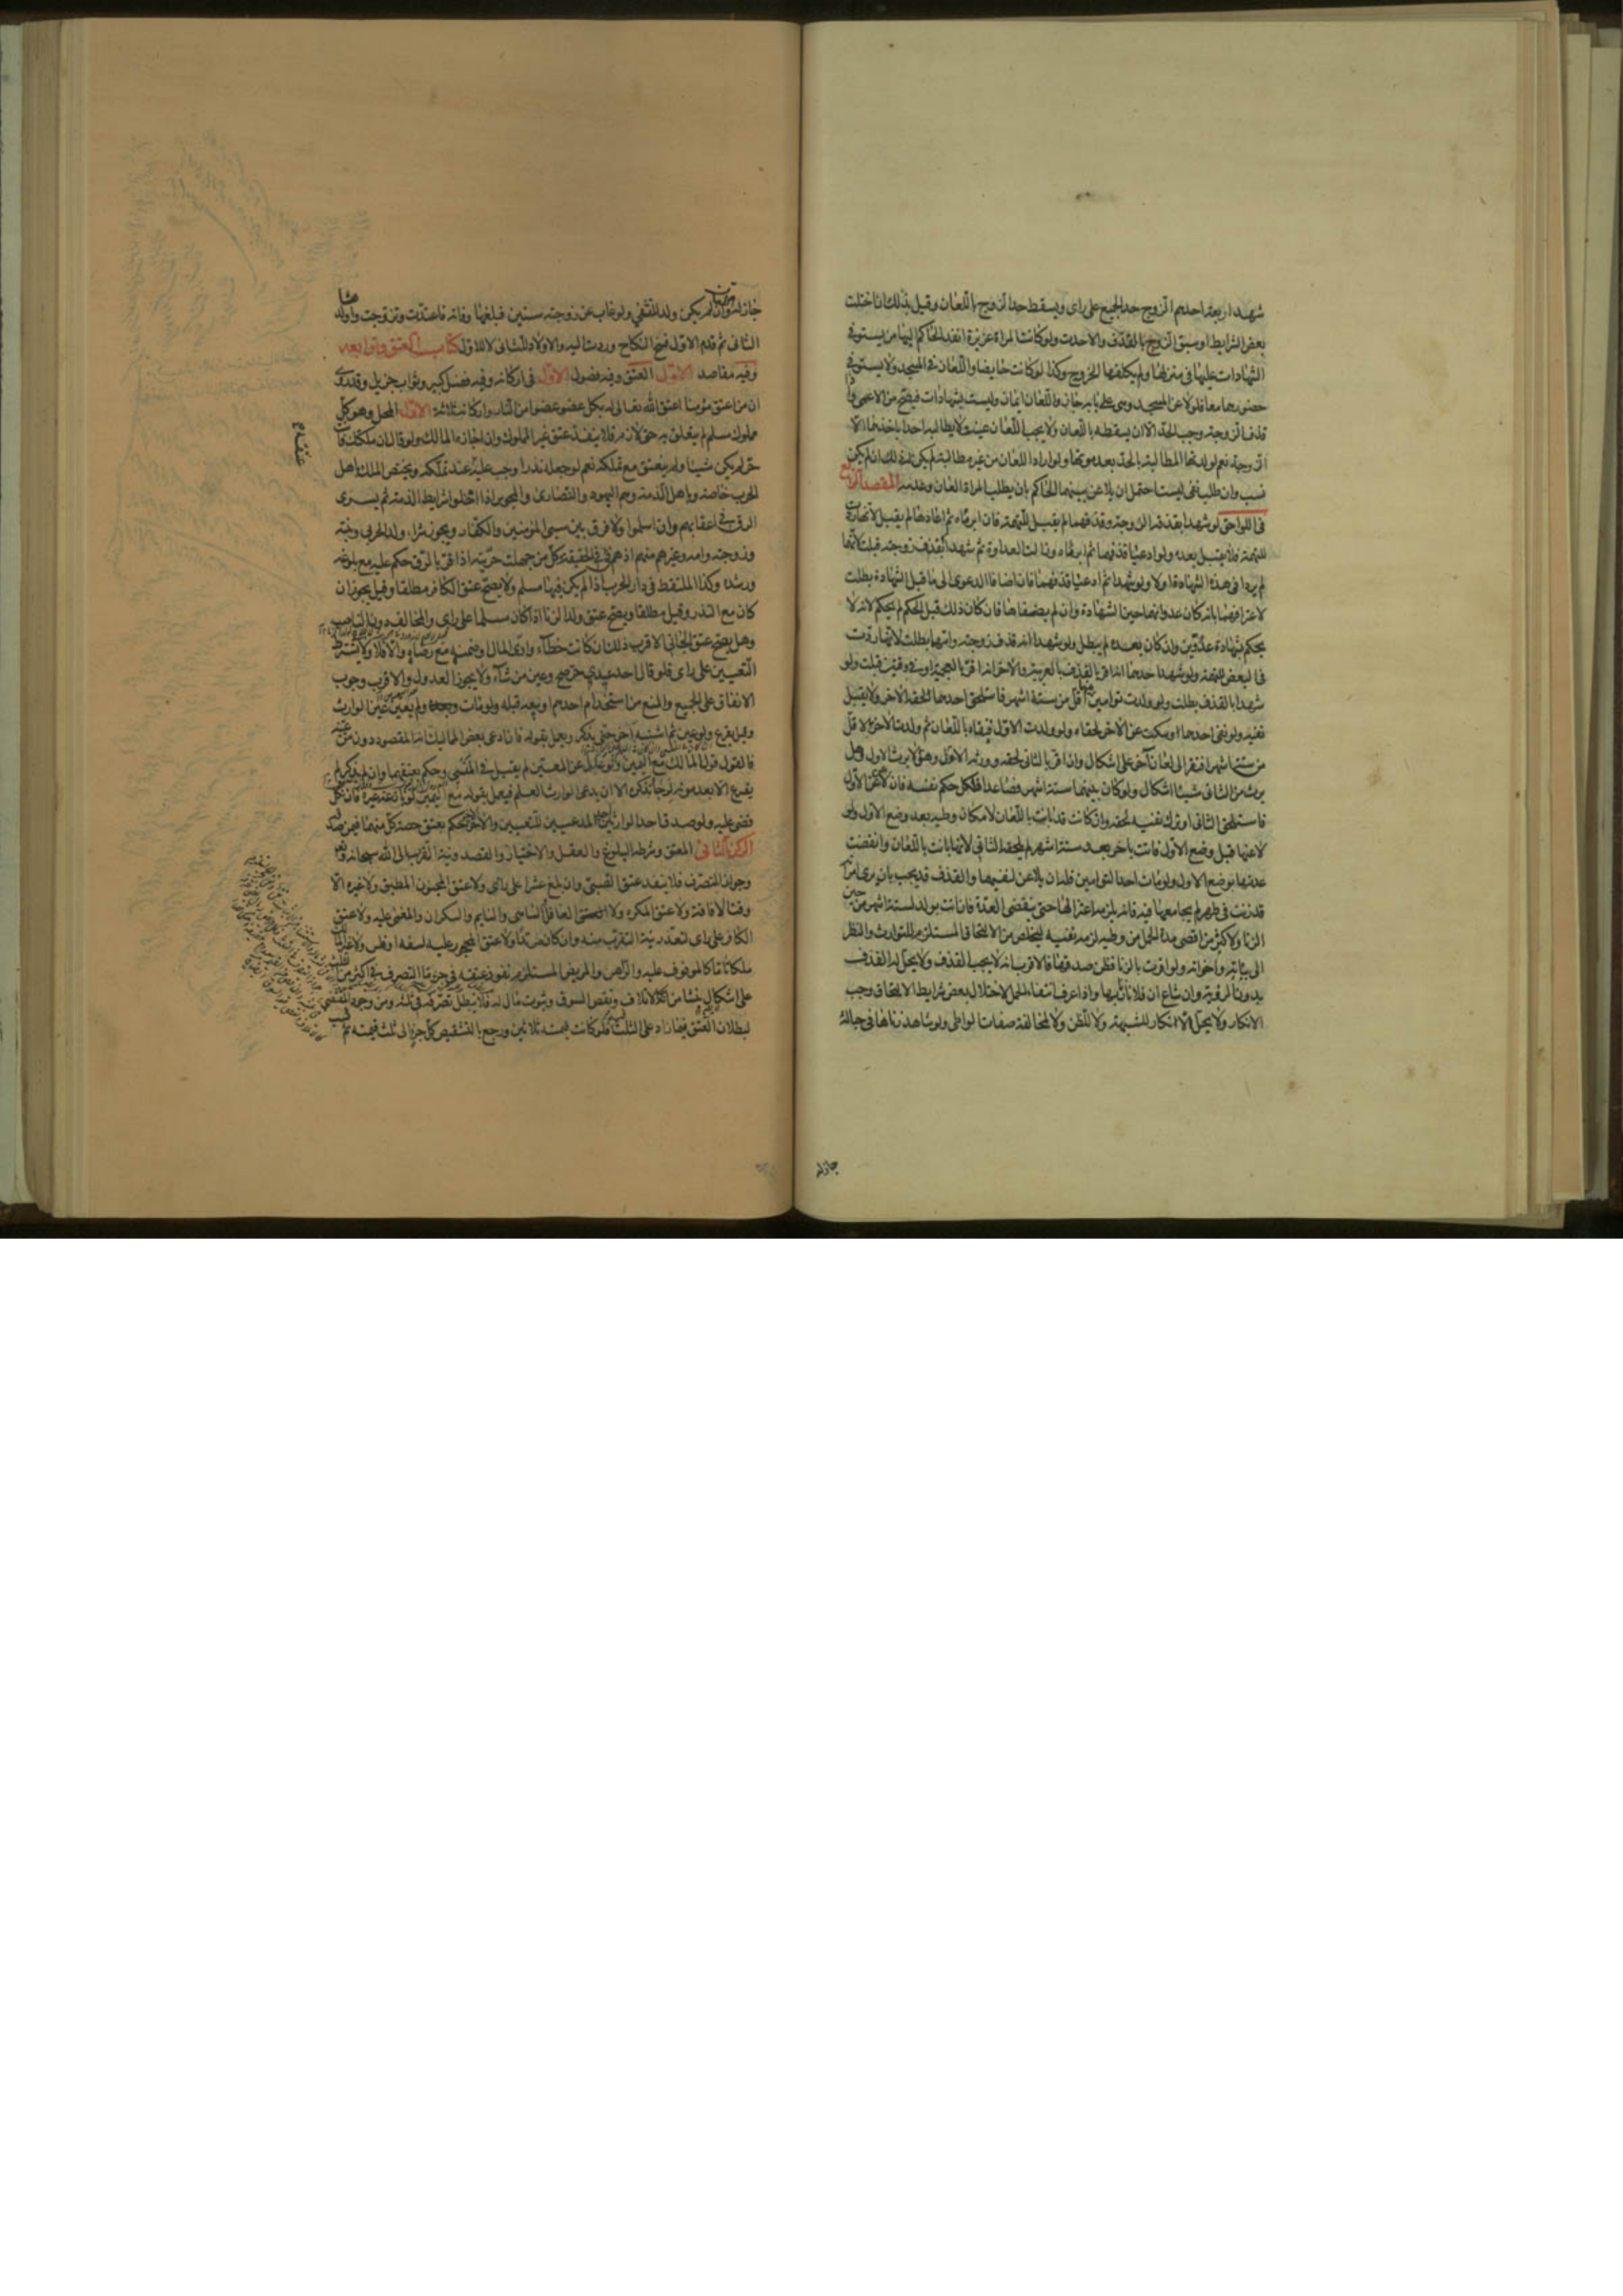 شهد اربعة احدهم الزوج حد الجميع على راى ويسقط حد الزوج باللعان وقيل بذلك ان اختلت
بعض الشرايط او سبق الزوج بالقذف والا حدت ولو كانت المراة غير برزة انفذ الحاكم اليها من يستوفى
الشهادات عليها فى منزلها ولم يكلفها الخروج وكذا لو كانت حايضا واللعان فى المسجد ولا يستوفى
حضورهما معا فلو لاعن فى المسجد وهى على بابه جاز واللعان ايمان وليست شهادات فيصح من الاعمى واذا
قذف الزوجة وجب الحد الا ان يسقطه باللعان ولا يجب اللعان عينا ولا يطالبه احد باحدهما الا
الزوجة نعم لولدها المطالبة بالحد بعد موتها ولو اراد اللعان من غير مطالبة لم يكن له ذلك ان لم يكن
نسب وان طلب نفى النسب احتمل ان يلاعن بينهما الحاكم بان يطلب المراة اللعان وعدمه المقصد الرابع
فى اللواحق لو شهدا بقذف الزوجة وقذفهما لم يقبل للتهمة فان ابرءاه ثم اعادها لم يقبل لانها ردت
للتهمة فلا يقبل بعده ولو ادعيا قذفهما ثم ابرءاه وزالت العداوة ثم شهدا بقذف زوجته قبلت لانهما
لم يردا فى هذه الشهادة اولا ولو شهدا ثم ادعيا قذفهما فان اضافا الدعوى الى ما قبل الشهادة بطلت
لاعترافهما بانه كان عدوا لهما حين الشهادة وان لم يضيفاها فان كان ذلك قبل الحكم لم يحكم لانه لا
يحكم بشهادة عدوين وان كان بعده لم يبطل ولو شهدا انه قذف زوجته وامهما بطلت لانها ردت
فى البعض للتهمة ولو شهد احدهما انه اقر بالقذف بالعربية والاخر انه اقر بالعجمية او فى وقتين قبلت ولو
شهدا بالقذف بطلت ولو ولدت توامين لاقل من ستة اشهر فاستلحق احدهما لحقه الاخر ولا يقبل
نفيه ولو نفى احدهما وسكت عن الاخر لحقاه ولو ولدت الاول فنفاه باللعان ثم ولدت الاخر لاقل
من ستة اشهر افتقر الى لعان آخر على اشكال وان اقر بالثانى لحقه وورثه الاول وهو لا يرث الاول وهل
يرث من الثانى شيئا اشكال ولو كان بينهما ستة اشهر فصاعدا فلكل حكم نفسه فان لاعن الاول
فاستلحق الثانى او ترك نفيه لحقه وان كانت قد بانت باللعان لامكان وطيه بعد وضع الاول ولو
لاعنها قبل وضع الاول فاتت باخر بعد ستة اشهر لم يلحقه الثانى لانها بانت باللعان وانقضت
عدتها بوضع الاول ولو مات احد التوامين فله ان يلاعن لنفيهما والقذف قد يجب بان يرى امراته
قد زنت فى طهر لم يجامعها فيه فانه يلزمه اعتزالها حتى ينقضى العدة فان اتت بولد لستة اشهر من حين
الزنا ولاكثر من اقصى مدة الحمل من وطيه لزمه نفيه ليتخلص من الالتحاق المستلزم للتوارث والنظر
الى بناته واخواته ولو اقرت بالزنا فظن صدقها فالاقرب انه لا يجب القذف ولا يحل له القذف
بدون الرؤية وان شاع ان فلانا زنا بها واذا عرف انتفاء الحمل لاختلال بعض شرايط الالتحاق وجب
الانكار ولا يحل الانكار للشبهة ولا للظن ولا لمخالفة صفات الواطى ولو شاهد زناها فى حبالة
جاز له
جاز له قذفها وان لم يكن ولد للتشفي ولو غاب عن زوجته سنين فبلغها وفاته فاعتدت وتزوجت واولدها
الثانى ثم قدم الاول فسخ النكاح وردت اليه والاولاد للثانى لا للاول كتاب العتق وتوابعه
وفيه مقاصد الاول العتق وفيه فصول الاول فى اركانه وفيه فضل كبير وثواب جزيل وقد روى
ان من اعتق مؤمنا اعتق الله تعالى له بكل عضو عضوا من النار واركانه ثلاثة الاول المحل وهو كل
مملوك مسلم لم يتعلق به حق لازم فلا ينفذ عتق غير المملوك وان اجازه المالك ولو قال ان ملكتك فانت
حر لم يكن شيئا ولم ينعتق مع تملكه نعم لو جعله نذرا وجب عليه عند تملكه ويختص الملك باهل
الحرب خاصة وباهل الذمة وهم اليهود والنصارى والمجوس اذا اخلوا بشرايط الذمة ثم يسرى
الرق فى اعقابهم وان اسلموا ولا فرق بين سبى المؤمنين والكفار ويجوز شراء ولد الحربى وبنته
وزوجته وامه وغيرهم منهم اذ هم فى فى الحقيقة وكل من جهلت حريته اذا اقر بالرق حكم عليه مع بلوغه
ورشده وكذا الملتقط فى دار الحرب اذا لم يكن فيها مسلم ولا يصح عتق الكافر مطلقا وقيل يجوز ان
كان مع النذر وقيل مطلقا ويصح عتق ولد الزنا اذا كان مسلما على راى والمخالف دون الناصب
وهل يصح عتق الجانى الاقرب ذلك ان كانت خطاء وادى المال او ضمنه مع رضاه والا فلا ولا يشترط
التعيين على راى فلو قال احد عبيدى حر صح وعين من شاء ولا يجوز العدول والاقرب وجوب
الانفاق على الجميع والمنع من استخدام احدهم او بيعه قبله ولو مات ولم يعين عين الوارث
وقيل يقرع ولو عين ثم اشتبه آخر حتى يذكر ويعمل بقوله فان ادعى بعض المماليك انه المقصود دون من عينه
فالقول قول المالك مع اليمين ولو عدل عن المعين لم يقبل فى المنسى وحكم بعتقهما وان لم يذكر لم
يقرع الا بعد موته لرجاء تذكره الا ان يدعى الوارث العلم فيعمل بقوله مع اليمين لو نازعه غيره فان نكل
قضى عليه ولو صدق احد الوارثين المدعيين للتعيين والاخر الاخر حكم بعتق حصة كل منهما فيمن صدقه
الركن الثانى المعتق وشرطه البلوغ والعقل والاختيار والقصد ونية القربة الى الله سبحانه وتعالى
وجواز التصرف فلا ينفذ عتق الصبى وان بلغ عشرا على راى ولا عتق المجنون المطبق ولا غيره الا
وقت الافاقة ولا عتق المكره ولا الغافل الساهى والنايم والسكران والمغمى عليه ولا عتق
الكافر على راى لتعذر نية التقرب منه وان كان مرتدا ولا عتق المحجور عليه لسفه او فلس ولا غير المالك
ملكا تاما كالموقوف عليه والراهن والمريض المستلزم نفوذ عتقه فى جزء ما التصرف فى اكثر من الثلث
على اشكال ينشا من كالاتلاف ونقص السوق وثبوت مال له فلا يبطل تصرفه فى ثلثه ومن وجود المقتضى
لبطلان العتق فيما زاد على الثلث فلو كانت قيمته ثلاثين ورجع بالتشقيص كل جزء الى ثلث قيمته ثم كسب